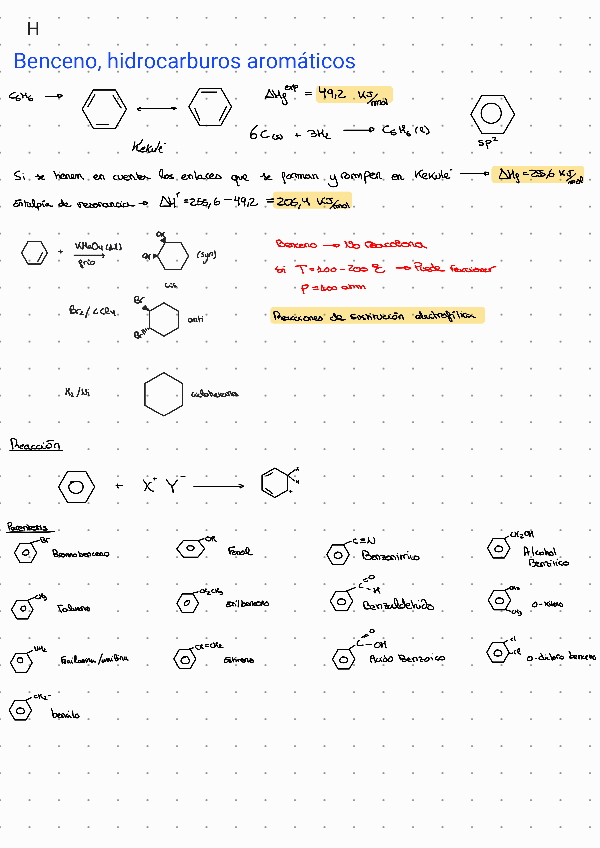 H
Benceno, hidrocarburos aromáticos
C₆H₆ →
ΔHf exp = 49,2 KJ/mol
Kekulé
6C(s) + 3H₂ → C₆H₆(l)
sp²
Si se tienen en cuenta los enlaces que se forman y rompen en Kekulé → ΔHf = 255,6 KJ/mol
Entalpía de resonancia → ΔHr = 255,6 - 49,2 = 206,4 KJ/mol
+ KMnO₄ (dil)
frío
OH
OH
(syn)
cis
Benceno → No reacciona
Si T = 100-200 ºC → Puede reaccionar
P = 100 atm
Br₂/CCl₄
Br
Br
anti
Reacciones de sustitución electrofílica
H₂/Ni
ciclohexano
Reacción
+ X⁺ Y⁻ →
+
Paréntesis
Br
Bromobenceno
OH
Fenol
C≡N
Benzonitrilo
CH₂OH
Alcohol
Bencílico
CH₃
Tolueno
CH₂CH₃
Etilbenceno
C=O
H
Benzaldehído
CH₃
CH₃
o-xileno
NH₂
Fenilamina/anilina
CH=CH₂
Estireno
C=O
OH
Ácido Benzoico
Cl
Cl
o-dicloro benceno
CH₂⁻
bencilo